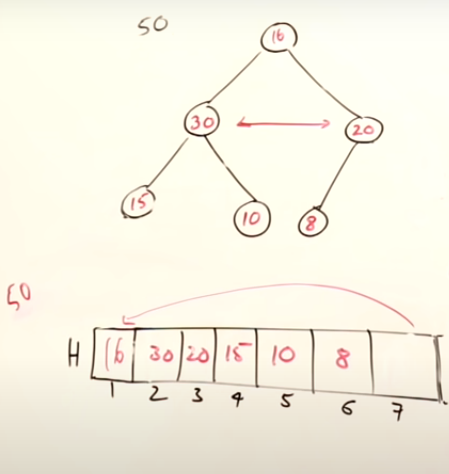 50
16
30 20
15 10 8
50
H 16 30 20 15 10 8
1 2 3 4 5 6 7